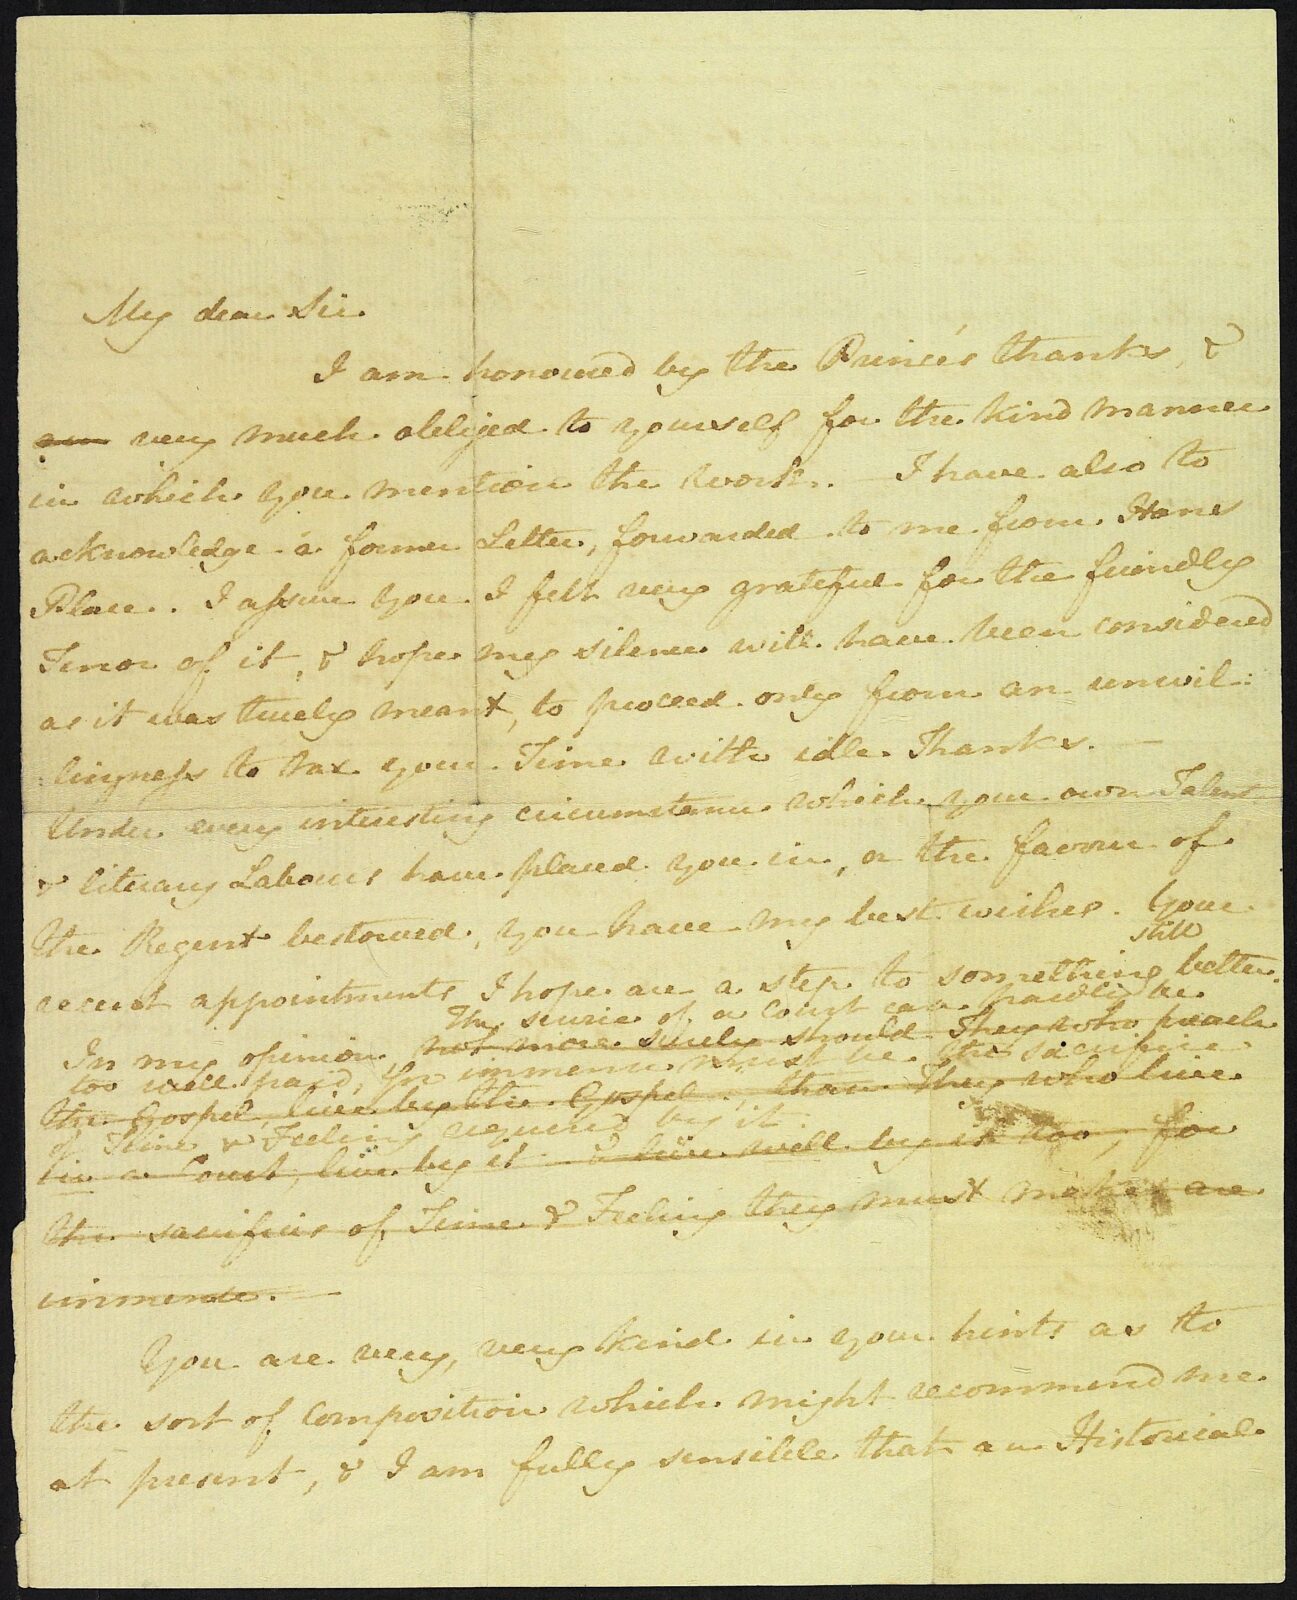 My dear Sir.
I am honoured by the Prince's thanks, &
am very much obliged to yourself for the kind manner
in which you mention the Work. I have also to
acknowledge a former Letter, forwarded to me from Hans
Place. I assure you I felt very grateful for the friendly
Tenor of it, & hope my silence will have been considered
as it was truely meant, to proceed only from an unwil:
lingness to tax your Time with idle Thanks. —
Under every interesting circumstance which your own Talent
& literary Labours have placed you in, or the favour of
the Regent bestowed, you have my best wishes. Your
still
recent appointments I hope are a step to something better.
The service of a Court can hardly be
In my opinion, not more surely should They who preach
too well paid, for immense must be the sacrifice
the Gospel, live by the Gospel, than They who live
of Time & Feeling required by it.
in a Court, live by it - & live well by it too; for
the sacrifices of Time & Feeling they must make are
immense. —
You are very, very kind in your hints as to
the sort of Composition which might recommend me
at present, & I am fully sensible that an Historical